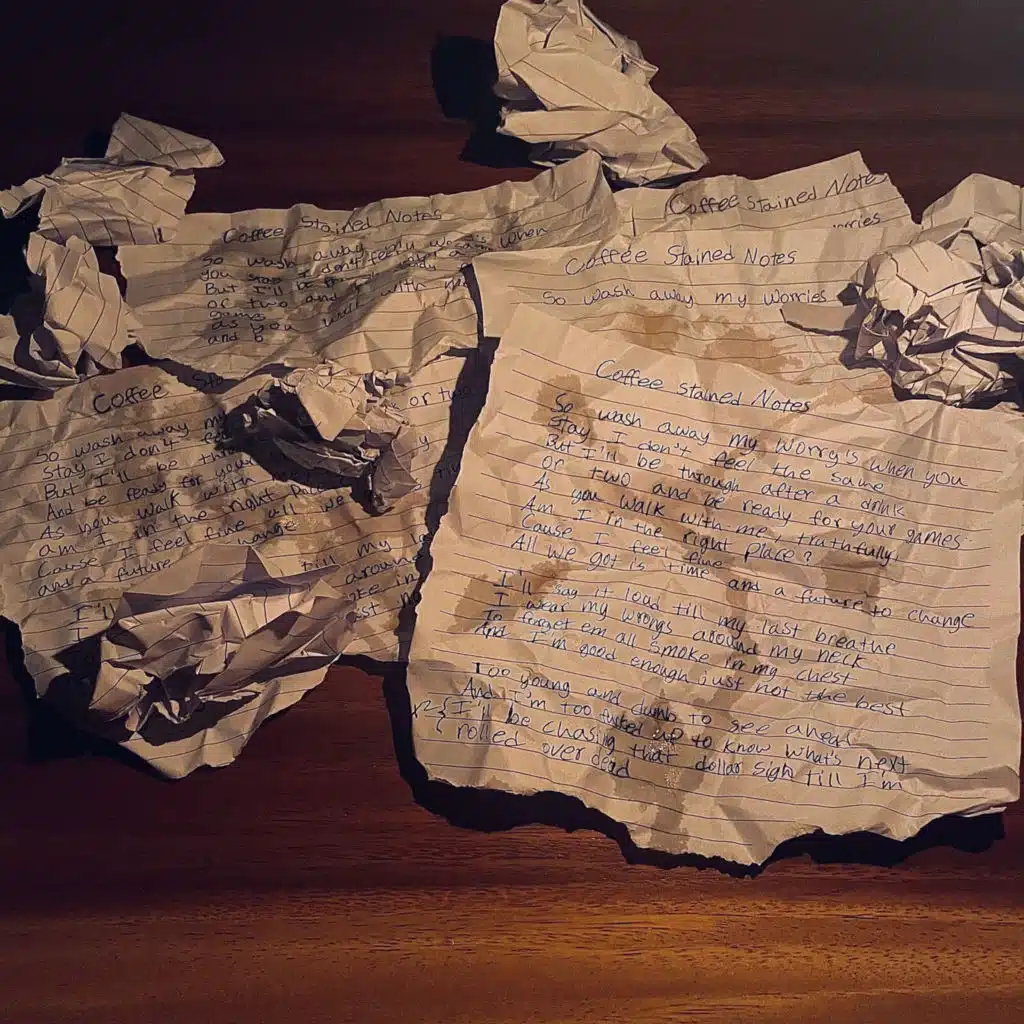 Coffee Stained Notes
So wash away my worry's when
you stay I don't feel
But I'll be
or two and with
games
as you walk
and b
Coffee Stained Notes
orries
Coffee Stained Notes
So wash away my worries
Coffee
or two
So wash away my
Stay I don't fe
But I'll be thro
And be ready for your
As you walk with
am I in the right place
Cause I feel fine all we
and a future hange
I'll till my
I around
oke in
est no
Coffee Stained Notes
So wash away my worry's when you
Stay I don't feel the same
But I'll be through after a drink
or two and be ready for your games
As you walk with me, truthfully.
Am I in the right place?
Cause I feel fine
All we got is time and a future to change
I'll say it loud till my last breathe
I wear my wrongs around my neck
To forget em all smoke in my chest
And I'm good enough just not the best
Too young and dumb to see ahead
And I'm too fucked up to know what's next
x2{ I'll be chasing that dollar sign till I'm
rolled over dead